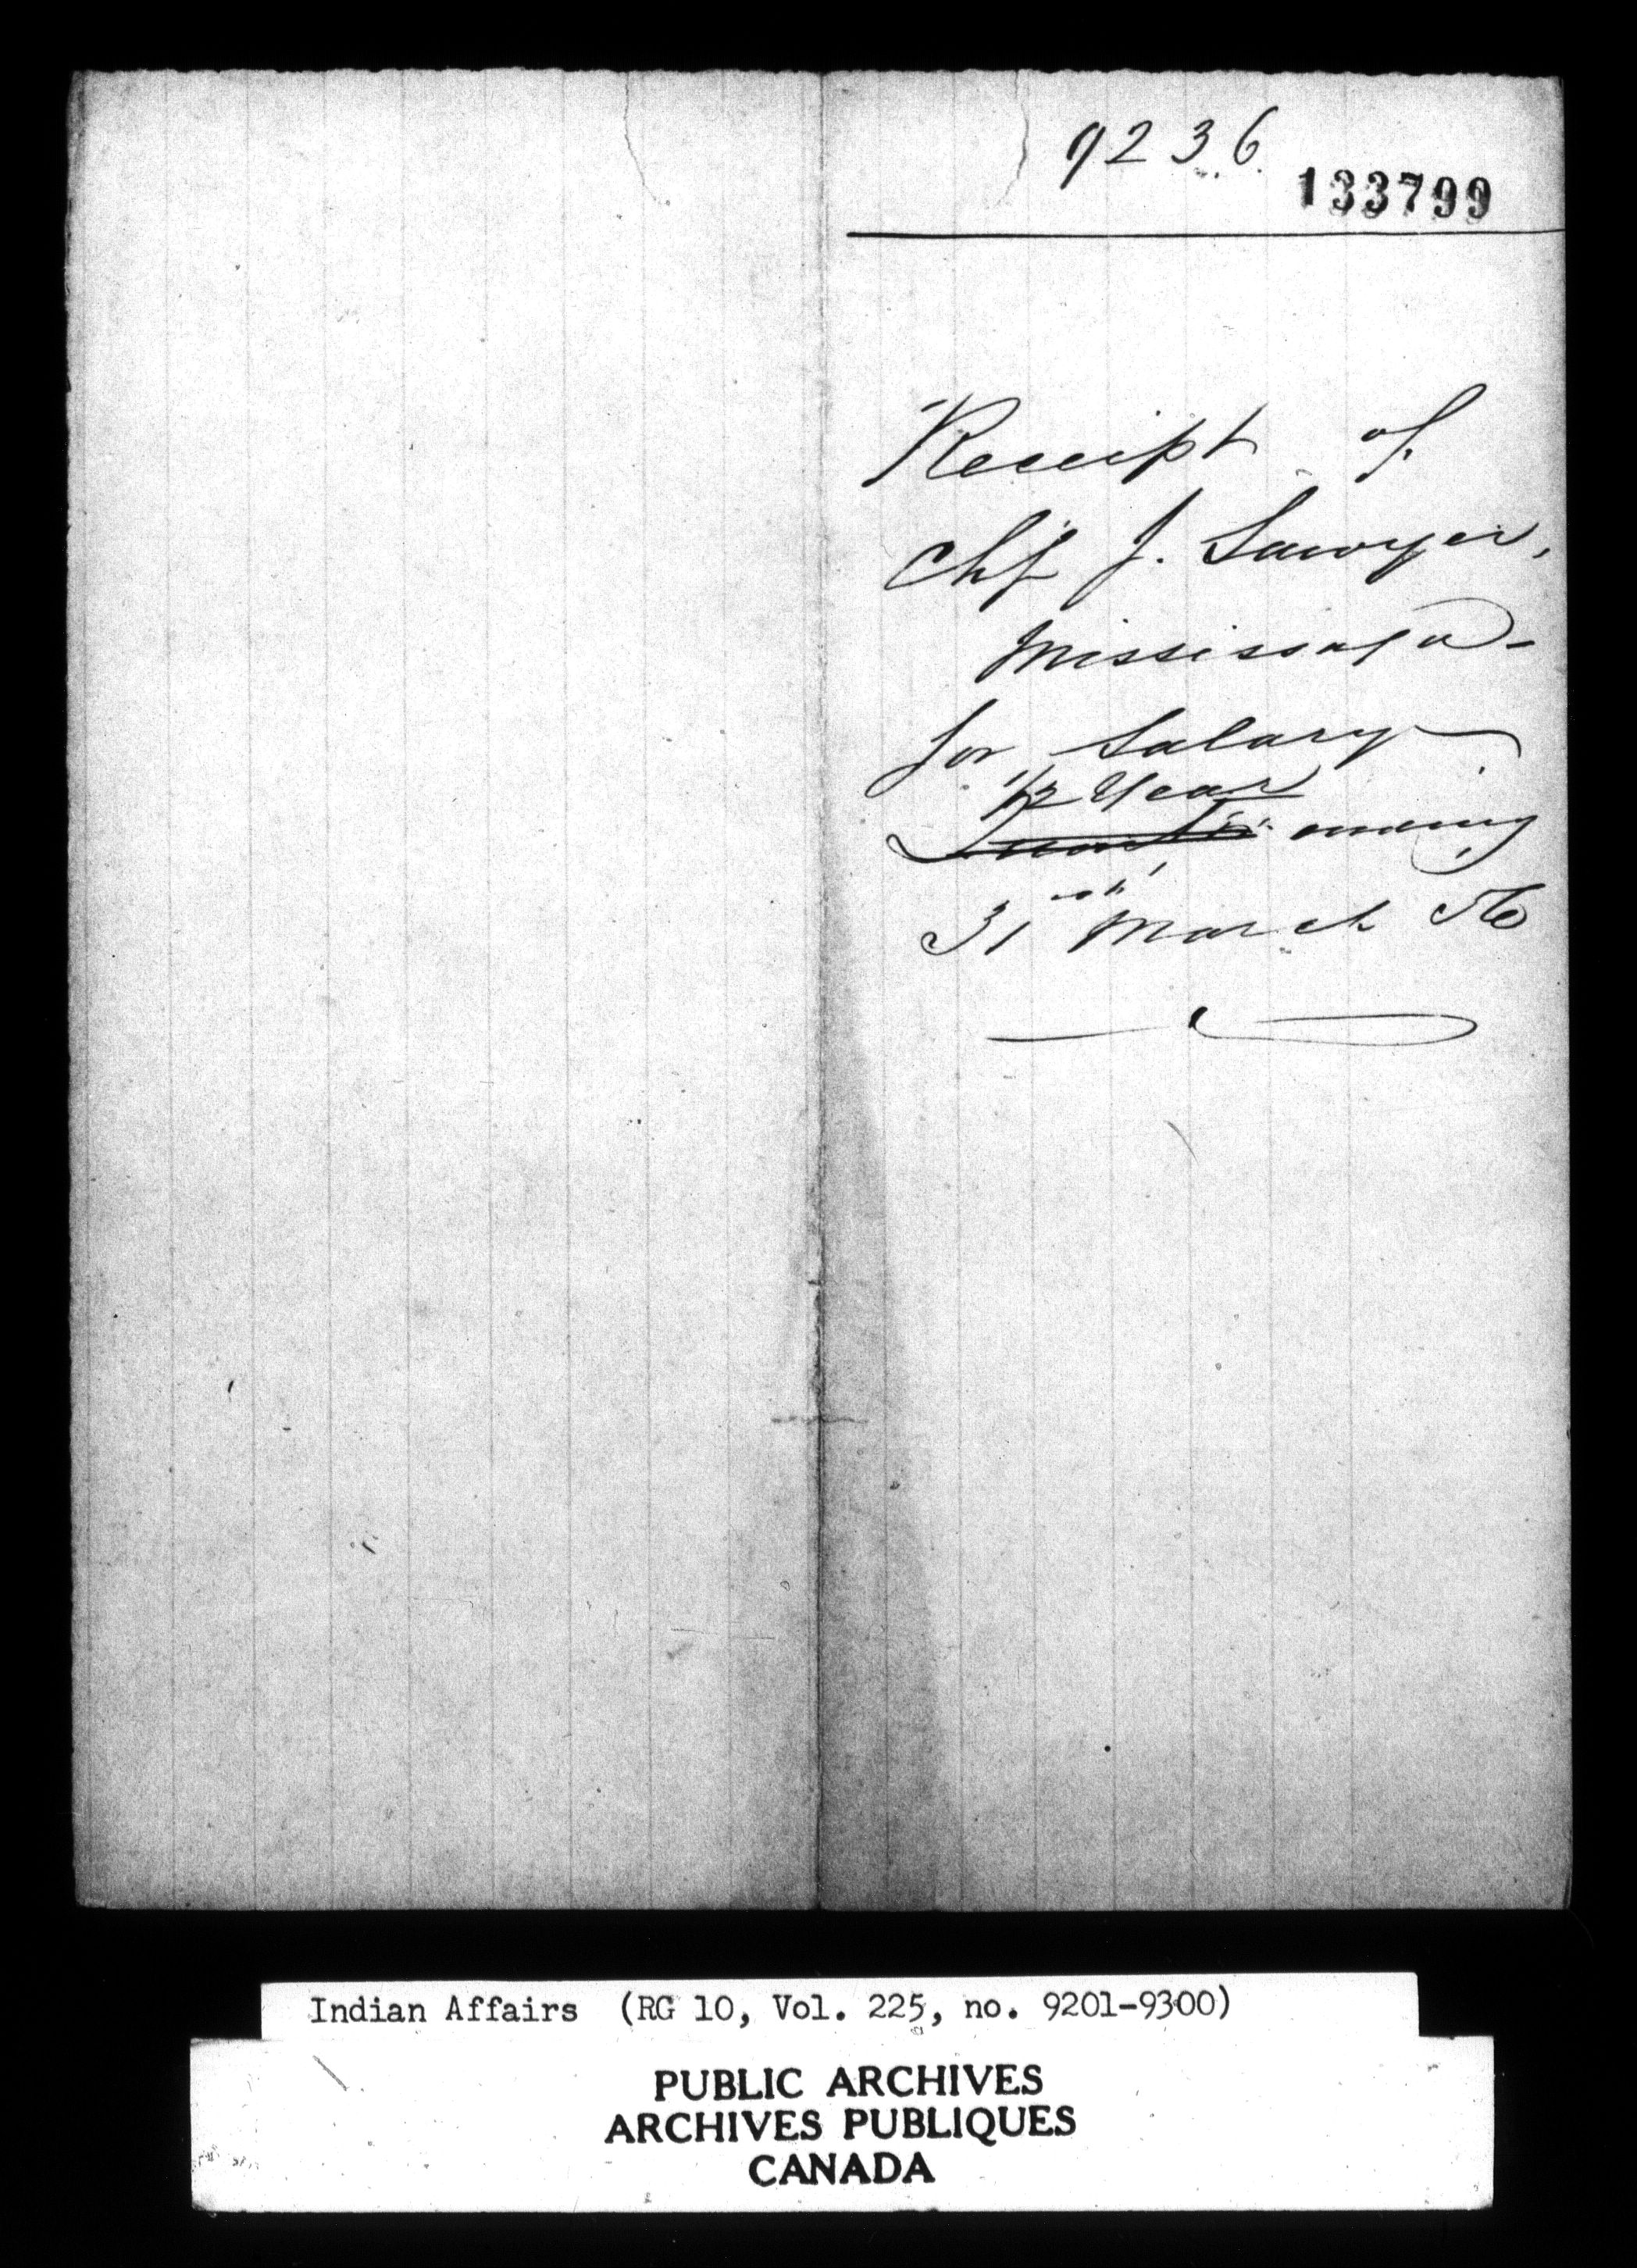 9236
133799
Receipt of
Chf J. Sawyer,
Mississaga-
for Salary
1/2 Year
Quarter ending
31st March 56
Indian Affairs (RG 10, Vol. 225, no. 9201-9300)
PUBLIC ARCHIVES
ARCHIVES PUBLIQUES
CANADA